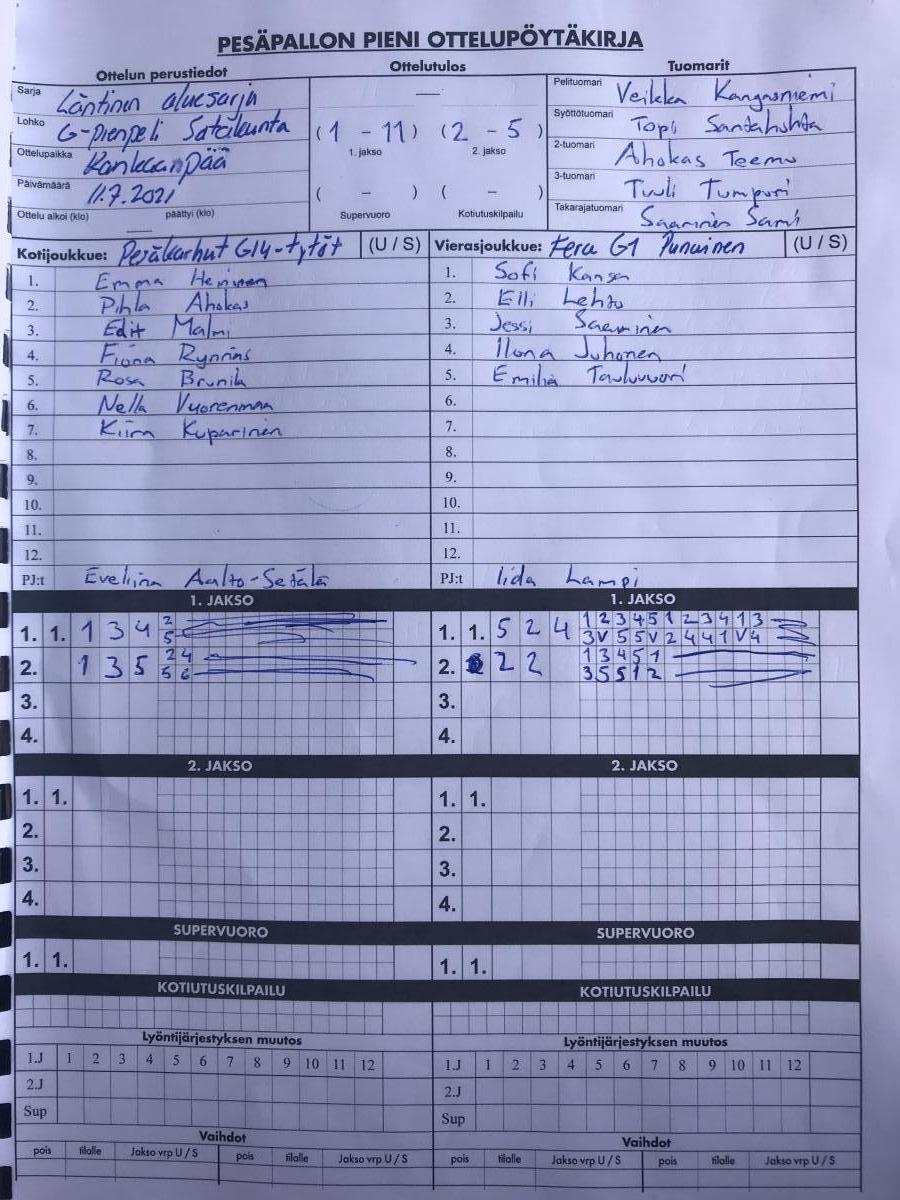 PESÄPALLON PIENI OTTELUPÖYTÄKIRJA
Ottelun perustiedot Ottelutulos Tuomarit
Sarja Läntinen aluesarja
Lohko G-pienpeli Satakunta
Ottelupaikka Kankaanpää
Päivämäärä 11.7.2021
Ottelu alkoi (klo) päättyi (klo)
(1 - 11) (2 - 5)
1. jakso 2. jakso
( - ) ( - )
Supervuoro Kotiutuskilpailu
Pelituomari Veikka Kangasniemi
Syöttötuomari Topi Santahuhta
2-tuomari Ahokas Teemu
3-tuomari Tuuli Tumpuri
Takarajatuomari Saarinen Sami
Kotijoukkue: Pesäkarhut G14-tytöt (U / S)
1. Emma Heninen
2. Pihla Ahokas
3. Edit Malmi
4. Fiona
5. Rosa Brunila
6. Nella Vuorenmaa
7. Kiira Kuparinen
8.
9.
10.
11.
12.
PJ:t Eveliina Aalto-Setälä
Vierasjoukkue: Fera G1 Punainen (U / S)
1. Sofi Kansa
2. Elli Lehto
3. Jessi Saarinen
4. Ilona Juhonen
5. Emilia Tauluvuori
6.
7.
8.
9.
10.
11.
12.
PJ:t Iida Lampi
1. JAKSO
1. 1. 1 3 4 2
5
2. 1 3 5 2 4
5 6
3.
4.
1. JAKSO
1. 1. 5 2 4 1 2 3 4 5 1 2 3 4 1 3
3 V 5 5 V 2 4 4 1 V 4
2. 2 2 1 3 4 5 1
3 5 5 1 2
3.
4.
2. JAKSO
1. 1.
2.
3.
4.
2. JAKSO
1. 1.
2.
3.
4.
SUPERVUORO SUPERVUORO
1. 1. 1. 1.
KOTIUTUSKILPAILU KOTIUTUSKILPAILU
Lyöntijärjestyksen muutos Lyöntijärjestyksen muutos
1.J 1 2 3 4 5 6 7 8 9 10 11 12 1.J 1 2 3 4 5 6 7 8 9 10 11 12
2.J 2.J
Sup Sup
Vaihdot Vaihdot
pois tilalle Jakso vrp U / S pois tilalle Jakso vrp U / S pois tilalle Jakso vrp U / S pois tilalle Jakso vrp U / S